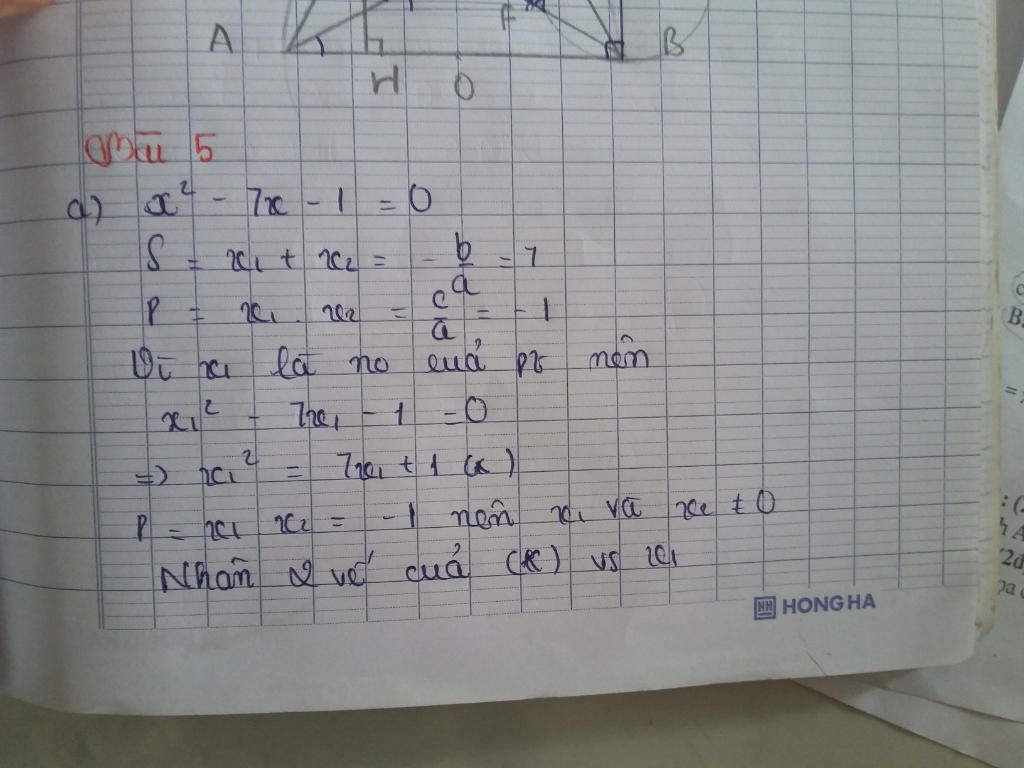 F
A
B
H
O
Bài 5
a) x² - 7x - 1 = 0
S = x₁ + x₂ = - b/a = 7
P = x₁ . x₂ = c/a = - 1
Vì x₁ là no cuả pt nên
x₁² - 7x₁ - 1 = 0
=> x₁² = 7x₁ + 1 (*)
P = x₁ x₂ = -1 nên x₁ và x₂ ≠ 0
Nhân 2 vế cuả (*) vs x₁
HH HONG HA